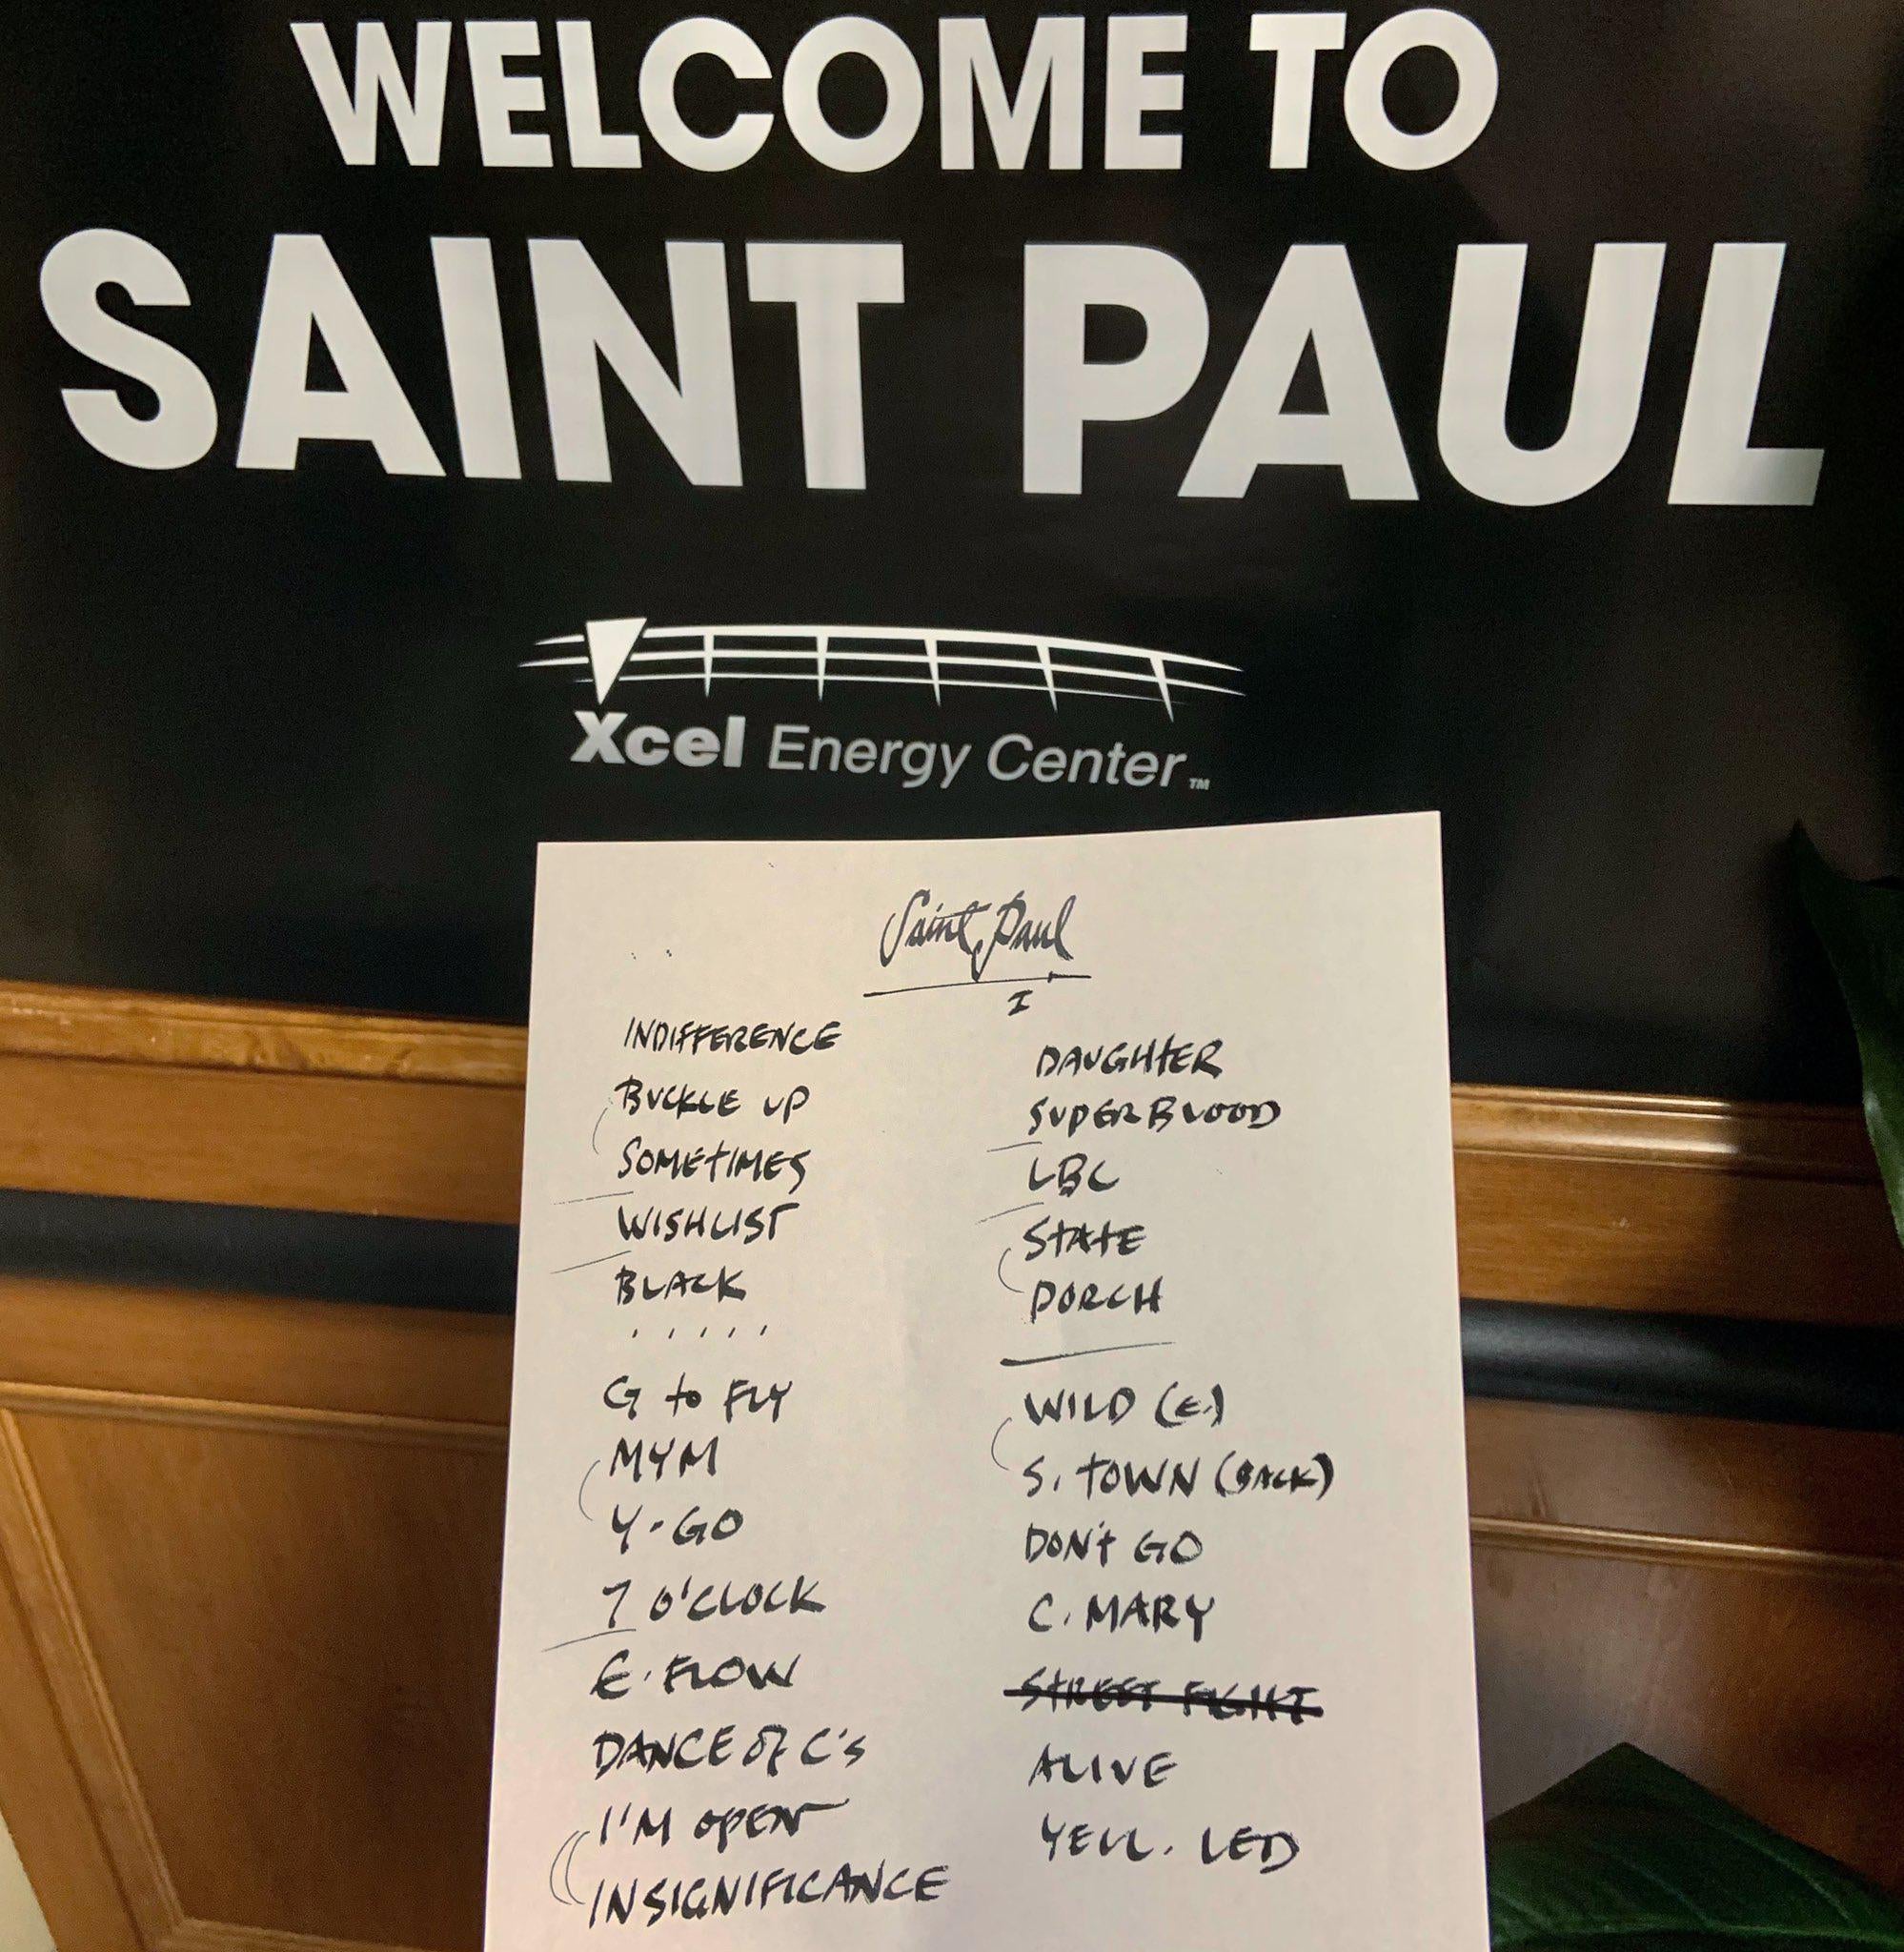 WELCOME TO
SAINT PAUL
Xcel Energy Center™
Saint Paul
I
INDIFFERENCE
BUCKLE UP
SOMETIMES
WISHLIST
BLACK
.....
G to FLY
MYM
Y-GO
7 O'CLOCK
E. FLOW
DANCE of C's
I'M OPEN
INSIGNIFICANCE
DAUGHTER
SUPERBLOOD
LBC
STATE
PORCH
WILD (E.)
S. TOWN (BACK)
DON'T GO
C. MARY
STREET FIGHT
ALIVE
YELL. LED